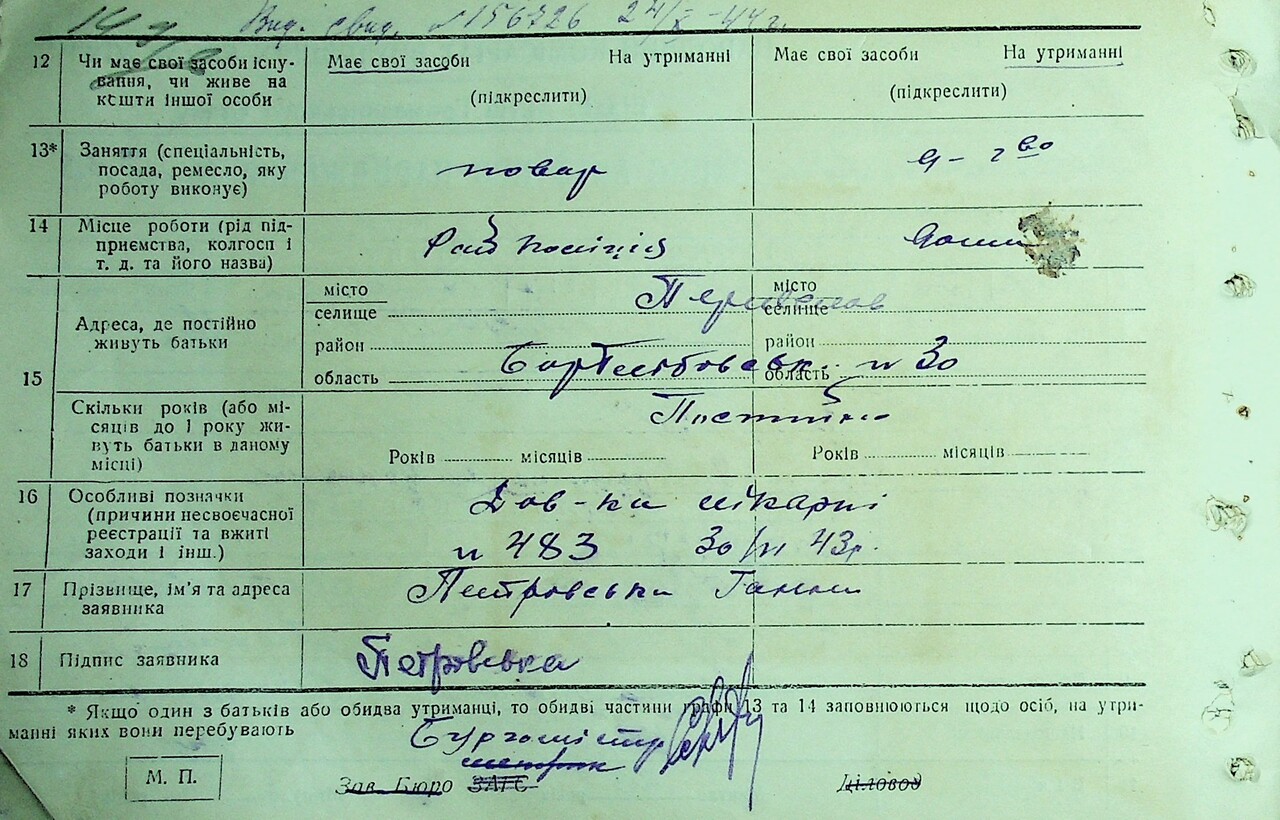 Вид. свид. №156726 24/X-44г.
12 Чи має свої засоби існу- Має свої засоби На утриманні Має свої засоби На утриманні
вання, чи живе на
кошти іншої особи (підкреслити) (підкреслити)
13* Заняття (спеціальність,
посада, ремесло, яку повар д-гво
роботу виконує)
14 Місце роботи (рід під-
приємства, колгосп і Рай поліція дома
т. д. та його назва)
15 Адреса, де постійно
живуть батьки
місто місто
селище селище
район район
область область
н 30
Скільки років (або мі- Постійно
сяців до 1 року жи-
вуть батьки в даному
місці) Років місяців Років місяців
16 Особливі позначки Дов-ка лікарні
(причини несвоєчасної
реєстрації та вжиті н 483 30/VI 43р.
заходи і інш.)
17 Прізвище, ім'я та адреса Петровська Ганна
заявника
18 Підпис заявника Петровська
* Якщо один з батьків або обидва утриманці, то обидві частини графи 13 та 14 заповнюються щодо осіб, на утри-
манні яких вони перебувають
Бургомістр
М. П. Зав. Бюро ЗАГС Діловод